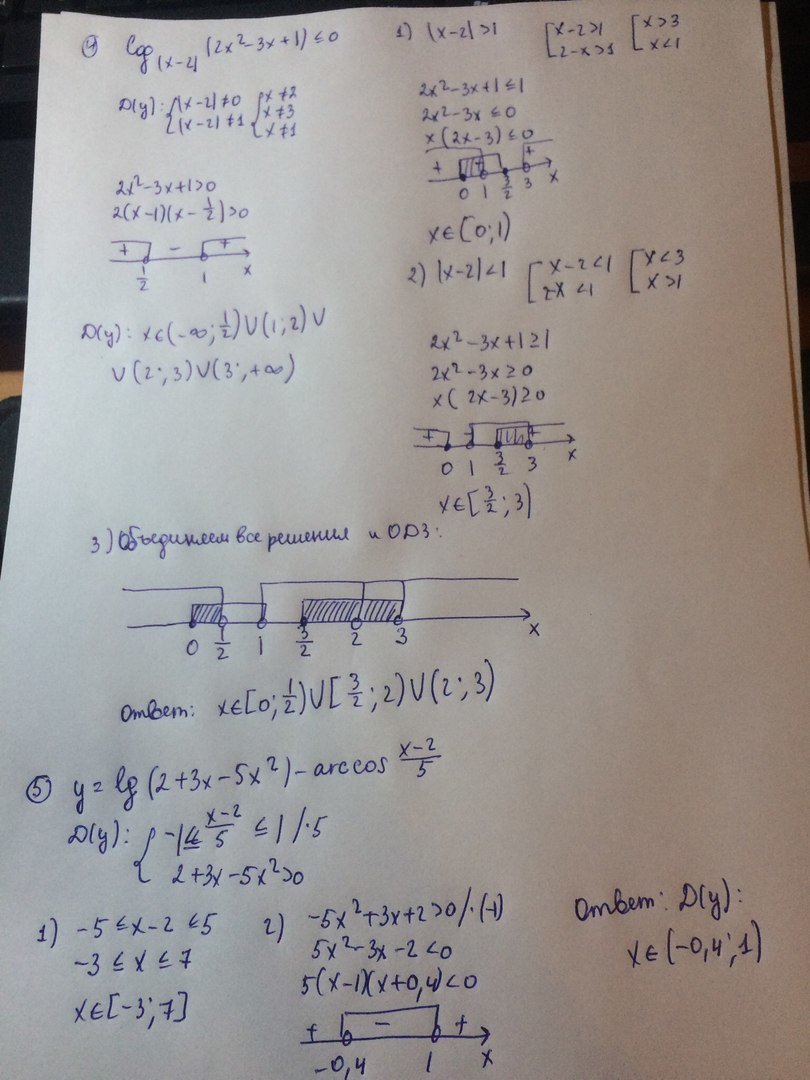 ④ log|x-2| (2x²-3x+1) ≤ 0
D(y): { |x-2| ≠ 0 { x ≠ 2
|x-2| ≠ 1 x ≠ 3
x ≠ 1
2x²-3x+1>0
2(x-1)(x-1/2)>0
+ - +
1/2 1 x
D(y): x∈(-∞; 1/2)∪(1; 2)∪
∪(2; 3)∪(3; +∞)
1) |x-2|>1 [ x-2>1 [ x>3
2-x>1 x<1
2x²-3x+1 ≤ 1
2x²-3x ≤ 0
x(2x-3) ≤ 0
+ - +
0 1 3/2 3 x
x∈[0; 1)
2) |x-2|<1 [ x-2<1 [ x<3
2-x<1 x>1
2x²-3x+1 ≥ 1
2x²-3x ≥ 0
x(2x-3) ≥ 0
+ - +
0 1 3/2 3 x
x∈[3/2; 3)
3) Объединяем все решения и ОДЗ:
0 1/2 1 3/2 2 3 x
Ответ: x∈[0; 1/2)∪[3/2; 2)∪(2; 3)
⑤ y = lg(2+3x-5x²) - arccos (x-2)/5
D(y): { -1 ≤ (x-2)/5 ≤ 1 /·5
2+3x-5x²>0
1) -5 ≤ x-2 ≤ 5
-3 ≤ x ≤ 7
x∈[-3; 7]
2) -5x²+3x+2>0 /·(-1)
5x²-3x-2<0
5(x-1)(x+0,4)<0
+ - +
-0,4 1 x
Ответ: D(y):
x∈(-0,4; 1)